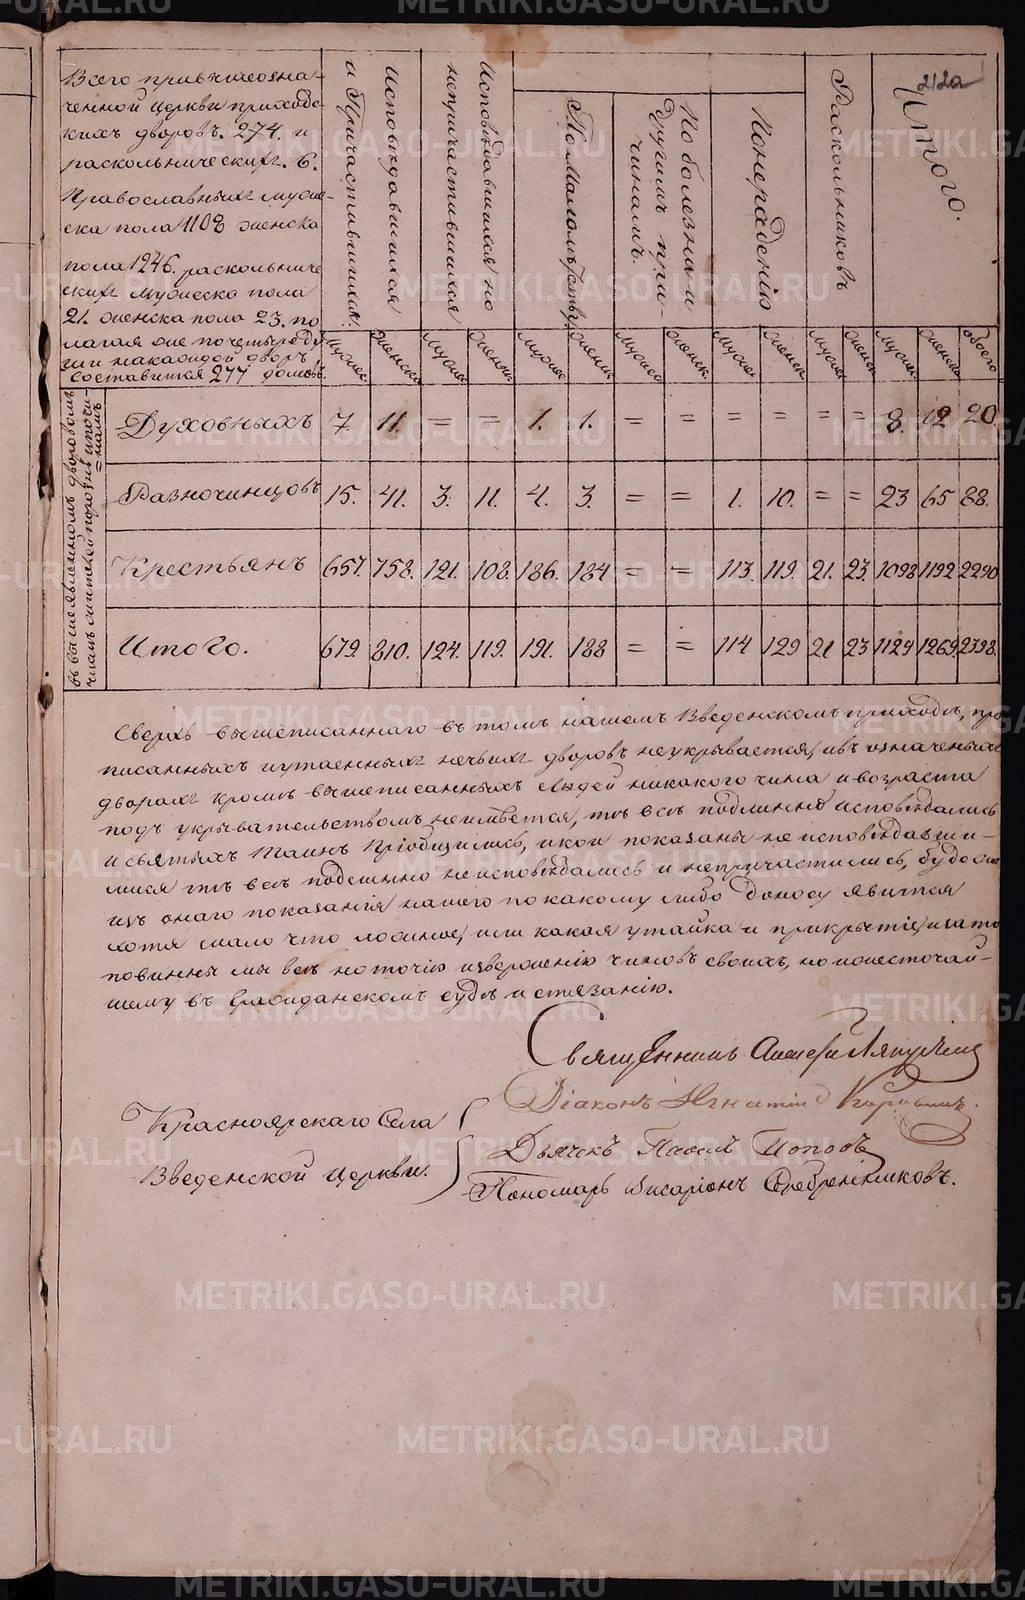 212а
Всего привышеозна-
ченной церкви приходс-
кихъ дворовъ. 274. и
раскольническихъ. 6.
Православныхъ мужес-
ска пола 1108 женска
пола 1246. раскольниче
скихъ мужеска пола
21. женска пола 23. по
лагая же по четыре ду
ши на каждой дворъ
составится 277 домовъ.
и Причастившихся.
Исповедавшихся
Исповѣдавшихся но
непричастившихся
По Малолѣтству
По болезни и
другимъ при-
чинамъ.
По нерадѣнію
Раскольниковъ
Итого.
мужес женск мужес женск мужес женск мужес женск мужес женск мужес женск мужес женска обоего
въ вышеявленномъ дворовомъ
числѣ
Духовныхъ 7. 11. = = 1. 1. = = = = = = 8. 12 20.
Разночинцовъ 15. 41. 3. 11. 4. 3. = = 1. 10. = = 23 65 88.
Крестьянъ 657. 758. 121. 108. 186. 184 = = 113. 119. 21. 23. 1098 1192 2290
Итого. 679. 810. 124. 119. 191. 188 = = 114 129 21 23 1129 1269. 2398.
Сверхъ вышеписаннаго въ томъ нашемъ Введенскомъ приходѣ, про
писанныхъ и утаенныхъ ничьихъ дворовъ не укрывается, и въ означенныхъ
дворахъ кромѣ вышеписанныхъ людей никакого чина и возраста
подъ укрывательствомъ неимѣется, тѣ всѣ подлинно исповѣдались
и святыхъ Таинъ Пріобщились, и кои показаны не исповѣдавши-
мися тѣ всѣ подлинно не исповѣдались и непричастились, буде же
изъ онаго показанія нашего по какому либо доносу явится
хотя мало что ложное, или какая утайка и прикрытіе, и за то
повинны мы всѣ не точію изверженію чиновъ своихъ, но и жесточай-
шему въ гражданскомъ судѣ истязанію.
Священникъ Алексей
Діаконъ Игнатій Коровинъ.
Красноярскаго Села
Введенской церкви.
Дьячекъ Павелъ Поповъ
Пономарь Висаріонъ Серебрениковъ.
METRIKI.GASO-URAL.RU